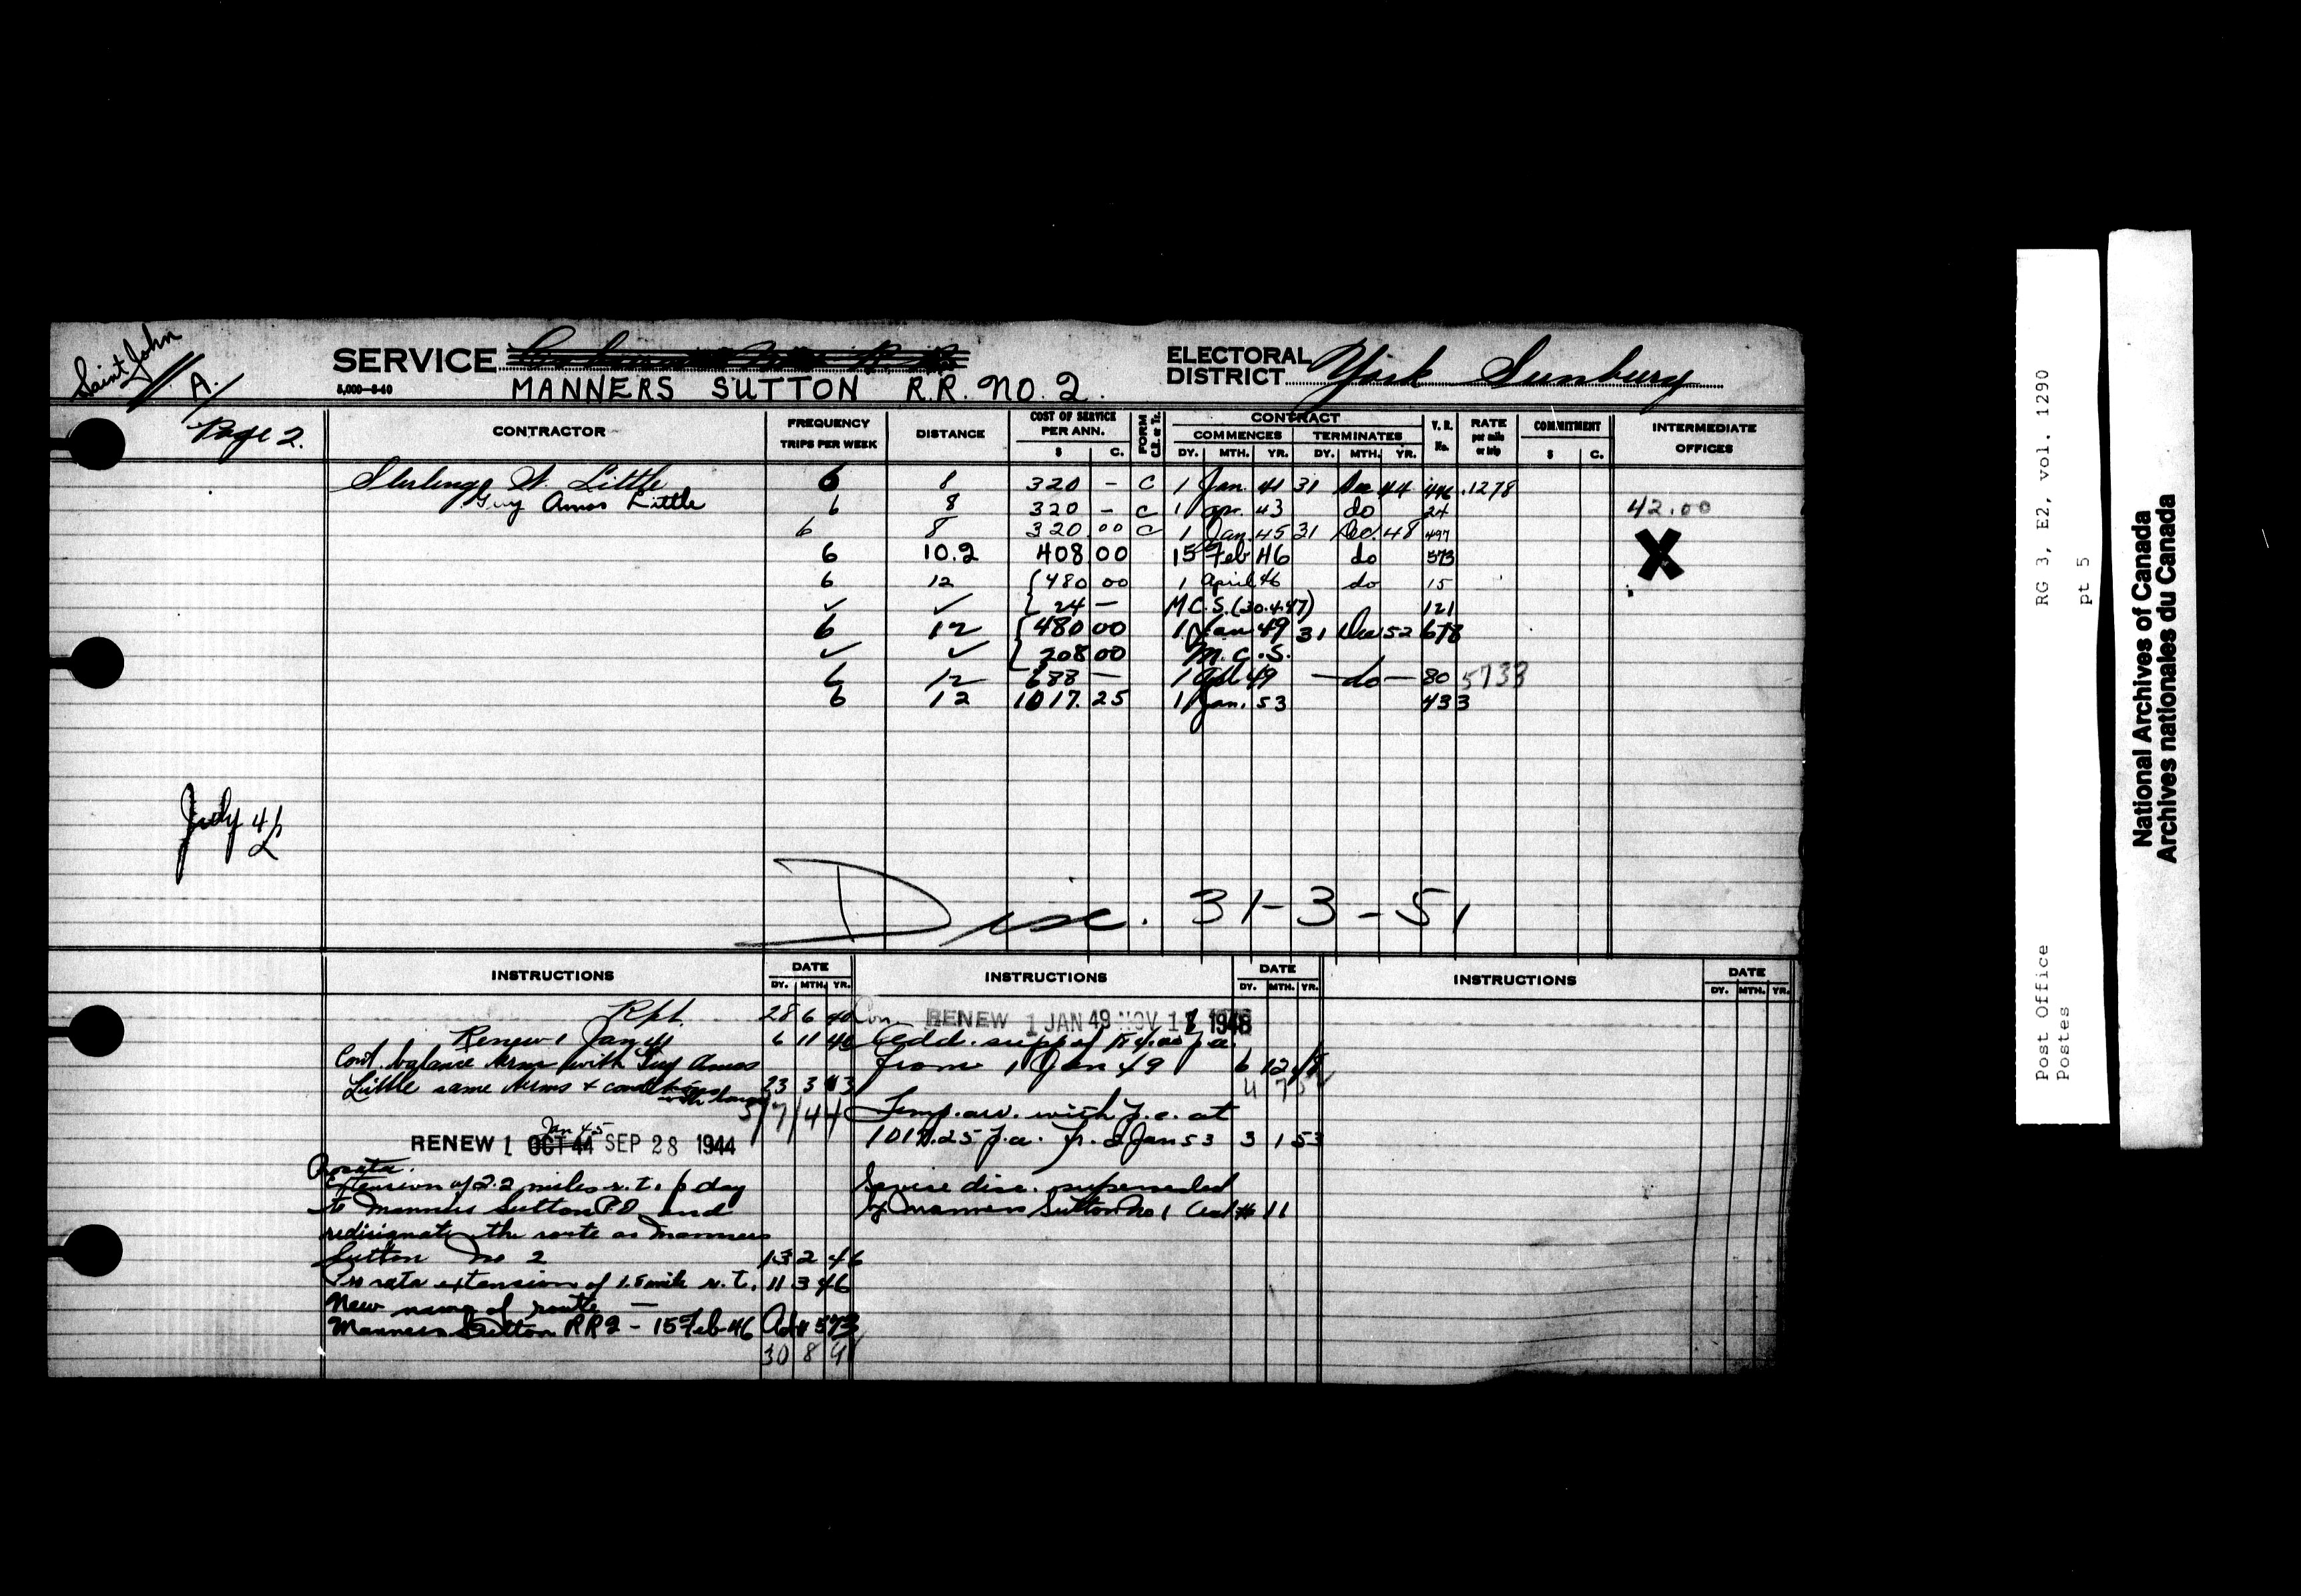 Saint John
A.
SERVICE
5,000-8-40
MANNERS SUTTON R.R. NO. 2.
ELECTORAL DISTRICT York Sunbury
Page 2.
CONTRACTOR
FREQUENCY TRIPS PER WEEK
DISTANCE
COST OF SERVICE PER ANN. $ C.
FORM C.R. or Tr.
CONTRACT
COMMENCES DY. MTH. YR.
TERMINATES DY. MTH. YR.
V. R. No.
RATE per mile or trip
COMMITMENT $ C.
INTERMEDIATE OFFICES
Sterling W. Little 6 8 320 – C 1 Jan. 41 31 Dec 44 446 .1278
Guy Amos Little 6 8 320 – C 1 apr. 43 do 24 42.00
6 8 320.00 C 1 Jan. 45 31 Dec. 48 497
6 10.2 408 00 15 Feb 46 do 573 X
6 12 480 00 1 April 46 do 15
✓ ✓ 24 – M.C.S. (30.4.47) 121
6 12 480 00 1 Jan 49 31 Dec 52 678
✓ ✓ 208 00 M.C.S.
6 12 688 – 1 Apl 49 – do – 80 5733
6 12 1017.25 1 Jan. 53 433
July 41
Disc. 31-3-51
INSTRUCTIONS DATE DY. MTH. YR.
INSTRUCTIONS DATE DY. MTH. YR.
INSTRUCTIONS DATE DY. MTH. YR.
Rpt. 28 6 40
Renew 1 Jan 41 6 11 40
Cont. balance terms with Guy Amos
Little same terms + conditions 23 3 43
5/7/44
Jan 45
RENEW 1 OCT 44 SEP 28 1944
Prorata.
Extension of 2.2 miles r.t. p day
to Manners Sutton P.O. and
redisignate the route as Manners
Sutton no 2 13 2 46
Pro rata extension of 1.8 mile r.t. 11 3 46
New name of route –
Manners Sutton RR2 – 15 Feb 46 Ad # 573
30 8 4
Con. RENEW 1 JAN 49 NOV 17 1948
Add. supp of p.a.
from 1 Jan 49 6 12 48
Temp. arr. with p.c. at
1017.25 p.a. fr. 2 Jan 53 3 1 53
Service disc. superseded
by Manners Sutton No 1 Ad # 11
RG 3, E2, vol. 1290
pt 5
Post Office
Postes
National Archives of Canada
Archives nationales du Canada